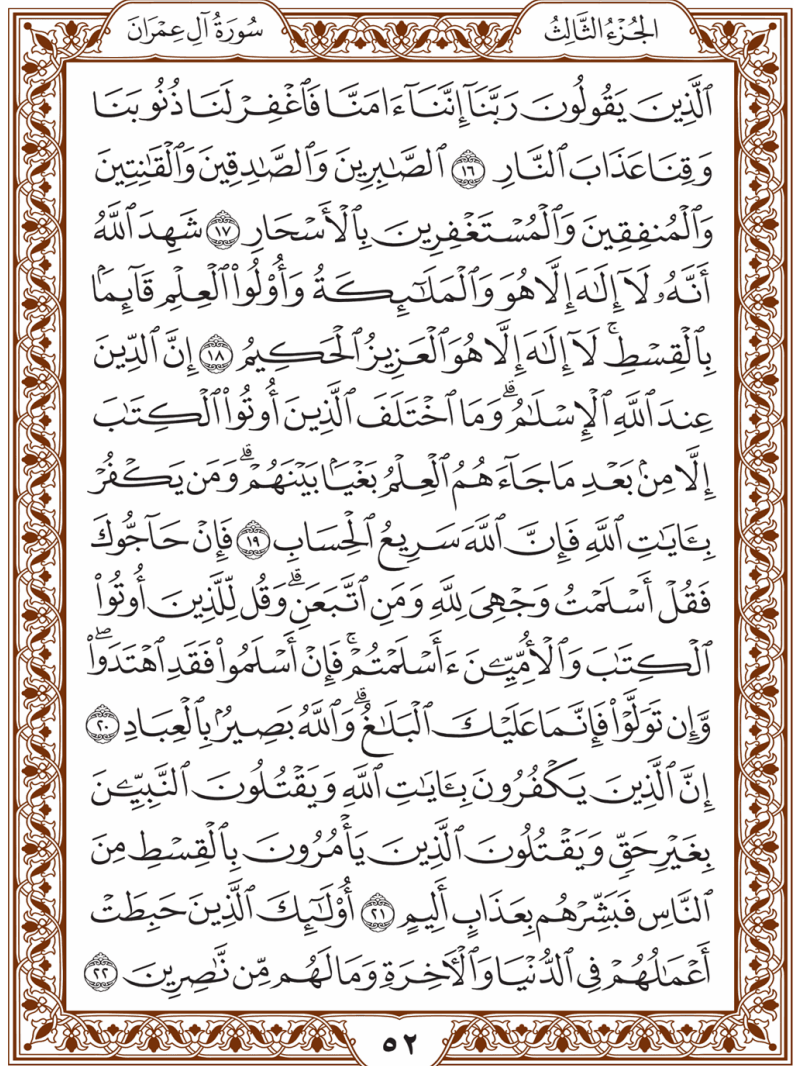 سُورَةُ آلِ عِمْرَانَ
الجُزْءُ الثَّالِثُ
ٱلَّذِينَ يَقُولُونَ رَبَّنَآ إِنَّنَآ ءَامَنَّا فَٱغْفِرْ لَنَا ذُنُوبَنَا
وَقِنَا عَذَابَ ٱلنَّارِ ١٦ ٱلصَّٰبِرِينَ وَٱلصَّٰدِقِينَ وَٱلْقَٰنِتِينَ
وَٱلْمُنفِقِينَ وَٱلْمُسْتَغْفِرِينَ بِٱلْأَسْحَارِ ١٧ شَهِدَ ٱللَّهُ
أَنَّهُۥ لَآ إِلَٰهَ إِلَّا هُوَ وَٱلْمَلَٰٓئِكَةُ وَأُو۟لُوا۟ ٱلْعِلْمِ قَآئِمًۢا
بِٱلْقِسْطِ ۚ لَآ إِلَٰهَ إِلَّا هُوَ ٱلْعَزِيزُ ٱلْحَكِيمُ ١٨ إِنَّ ٱلدِّينَ
عِندَ ٱللَّهِ ٱلْإِسْلَٰمُ ۗ وَمَا ٱخْتَلَفَ ٱلَّذِينَ أُوتُوا۟ ٱلْكِتَٰبَ
إِلَّا مِنۢ بَعْدِ مَا جَآءَهُمُ ٱلْعِلْمُ بَغْيًۢا بَيْنَهُمْ ۗ وَمَن يَكْفُرْ
بِـَٔايَٰتِ ٱللَّهِ فَإِنَّ ٱللَّهَ سَرِيعُ ٱلْحِسَابِ ١٩ فَإِنْ حَآجُّوكَ
فَقُلْ أَسْلَمْتُ وَجْهِىَ لِلَّهِ وَمَنِ ٱتَّبَعَنِ ۗ وَقُل لِّلَّذِينَ أُوتُوا۟
ٱلْكِتَٰبَ وَٱلْأُمِّيِّـۧنَ ءَأَسْلَمْتُمْ ۚ فَإِنْ أَسْلَمُوا۟ فَقَدِ ٱهْتَدَوا۟ ۖ
وَّإِن تَوَلَّوْا۟ فَإِنَّمَا عَلَيْكَ ٱلْبَلَٰغُ ۗ وَٱللَّهُ بَصِيرٌۢ بِٱلْعِبَادِ ٢٠
إِنَّ ٱلَّذِينَ يَكْفُرُونَ بِـَٔايَٰتِ ٱللَّهِ وَيَقْتُلُونَ ٱلنَّبِيِّـۧنَ
بِغَيْرِ حَقٍّ وَيَقْتُلُونَ ٱلَّذِينَ يَأْمُرُونَ بِٱلْقِسْطِ مِنَ
ٱلنَّاسِ فَبَشِّرْهُم بِعَذَابٍ أَلِيمٍ ٢١ أُو۟لَٰٓئِكَ ٱلَّذِينَ حَبِطَتْ
أَعْمَٰلُهُمْ فِى ٱلدُّنْيَا وَٱلْـَٔاخِرَةِ وَمَا لَهُم مِّن نَّٰصِرِينَ ٢٢
٥٢